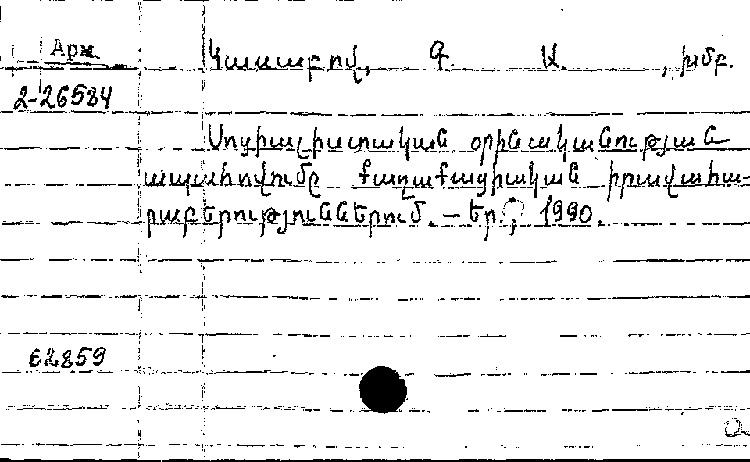 Арм
2-26584
Կասաբով, Գ. Ա. , խմբ.
Սոցիալիստական օրինականության
ապահովումը քաղաքացիական իրավահա-
րաբերություններում. — Եր.; 1990.
62859